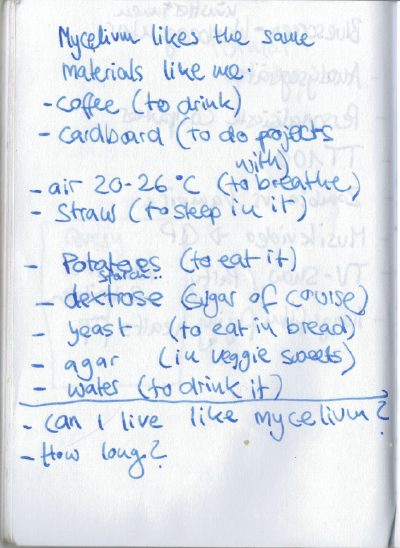 Mycelium likes the same
materials like me.
- coffee (to drink)
- cardboard (to do projects
with)
- air 20-26°C (to breathe)
- Straw (to sleep in it)
- Potatoes (to eat it)
starch..
- dextrose (sugar of course)
- yeast (to eat in bread)
- agar (in veggie sweets)
- water (to drink it)
- can I live like mycelium?
- How long?